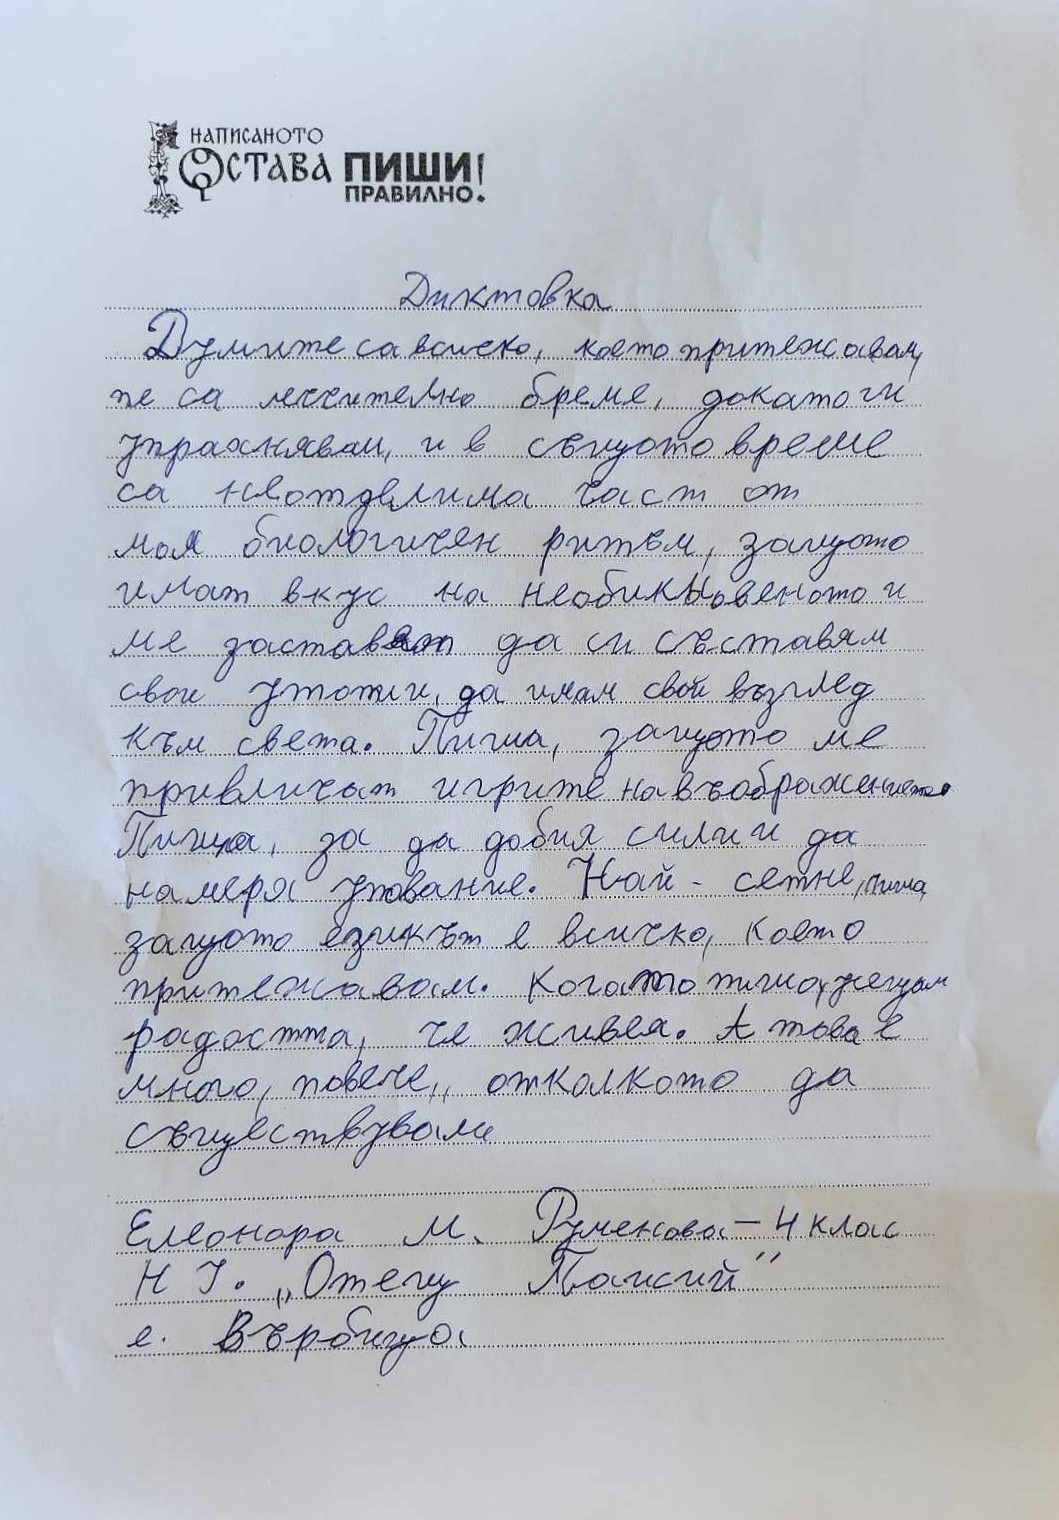 НАПИСАНОТО
ОСТАВА ПИШИ
ПРАВИЛНО!
Диктовка
Думите са всичко, което притежавам,
не са мъчително бреме, докато ги
упражнявам, и в същото време
са неотделима част от
моя биологичен ритъм, защото
имат вкус на необикновеното и
ме заставят да си съставям
свои утопии, да имам свой възглед
към света. Пиша, защото ме
привличат игрите на въображението.
Пиша, за да добия сили и да
намеря упование. Най - сетне, пиша,
защото езикът е всичко, което
притежавам. Когато пиша, усещам
радостта, че живея. А това е
много, повече, отколкото да
съществувам
Елеонора М. Руменова – 4 клас
"Отец Паисий"
с. Върбица